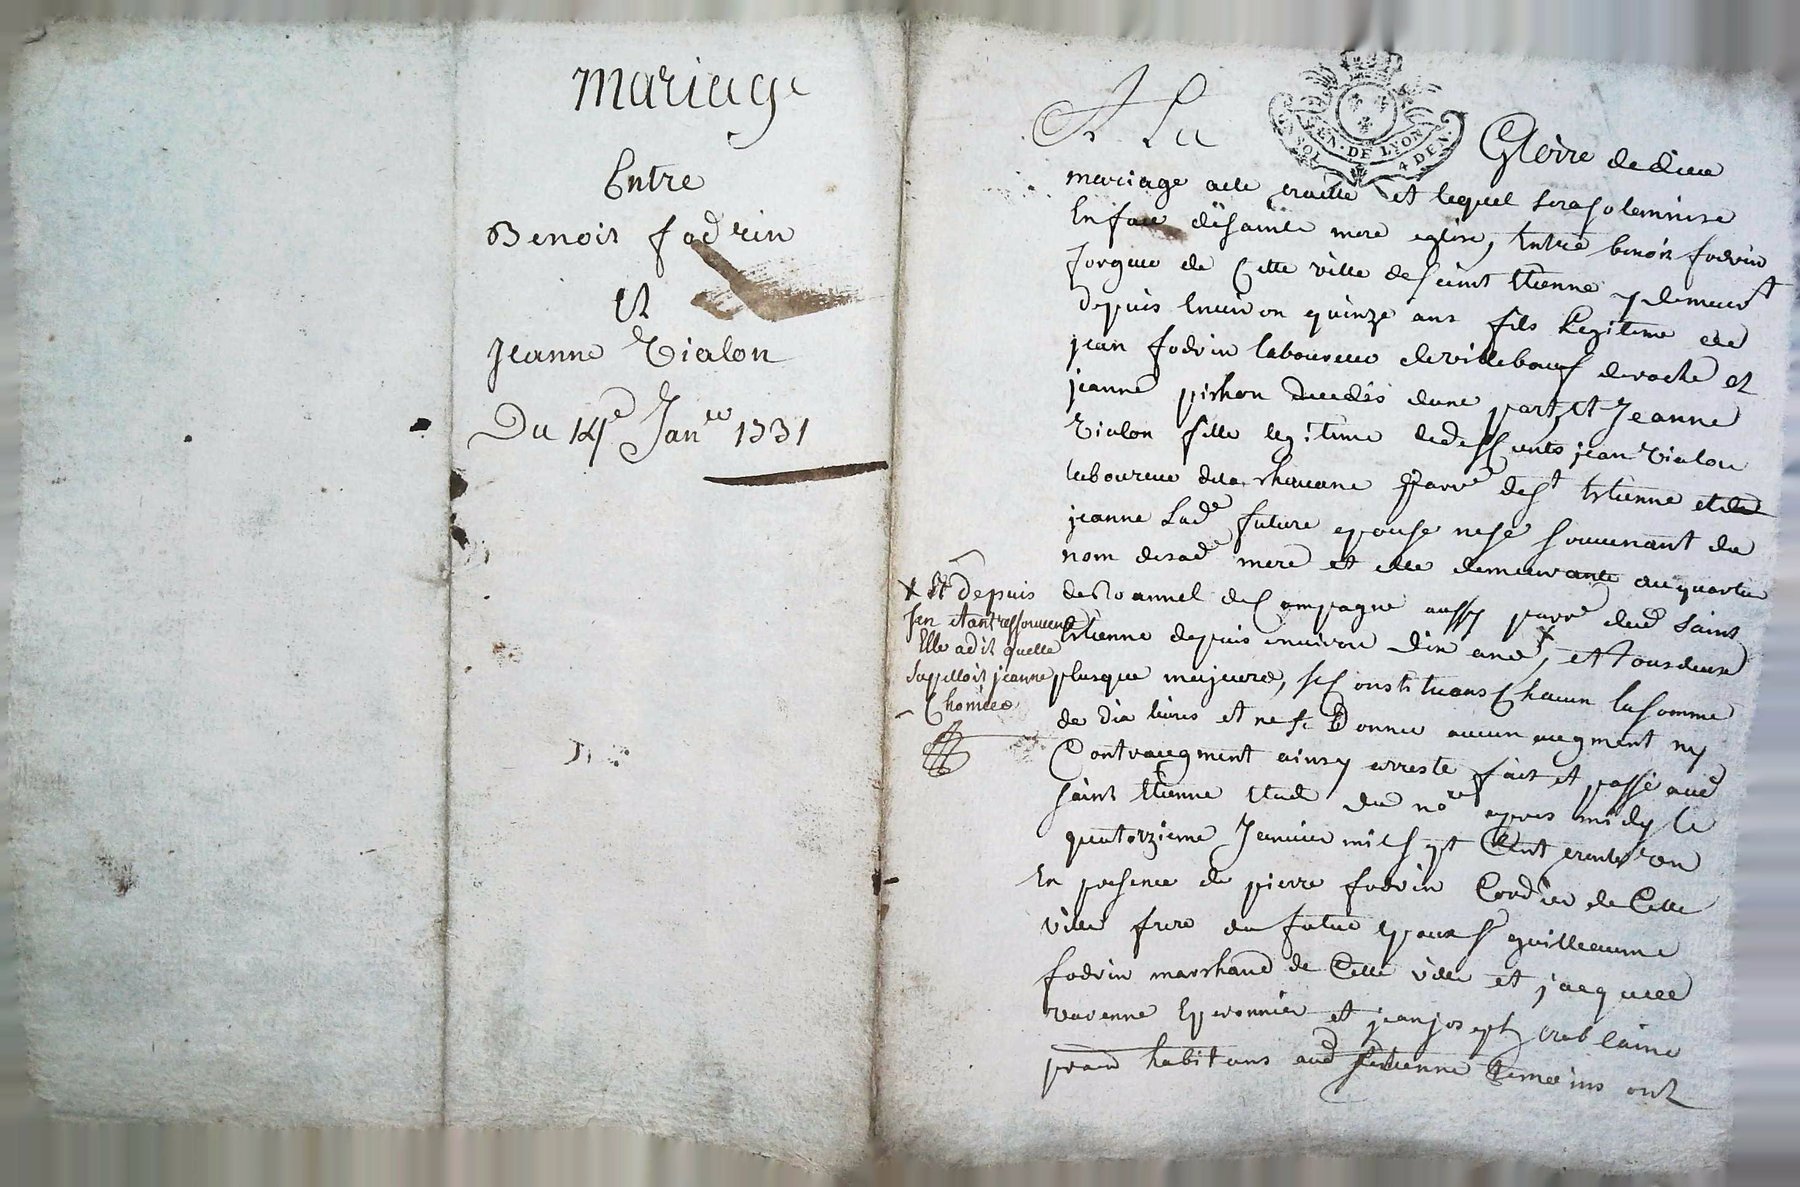 mariage
Entre
Benoit fodrin
Et
Jeanne Vialon
Du 14e Janer 1731
GEN. DE LYON
UN SOL 4 DEN.
A La Gloire de dieu
mariage acte traitte et lequel sera solemnise
En face de sainte mere eglise, Entre benoit fodrin
forgeur de Cette ville de saint Etienne y demeurt
depuis Environ quinze ans fils legitime de
jean fodrin laboureur de villebœuf de roche et
jeanne pichon decedés dune part, Et Jeanne
Vialon fille legitime de deffunts jean Vialon
laboureur de la chauane Parre de st Etienne et de
jeanne Lade future epouse ne se souvenant du
nom de sade mere et elle demeurante au quartier
de Roannel de Campagne aussy parre dud saint
Etienne depuis environ dix ans x, et tous deux
plus que majeurs, se Constituans Chacun la somme
de dix livres et ne se Donner aucun augment ny
Contraugment ainsy arresté fait et passé aud
saint Etienne Etude du nore apres midy le
quatorzieme Janvier mil sept Cent trente un
En presence de pierre fodrin Cordier de Cette
ville frere du futur Epoux sr guilleaume
fodrin marchand de Cette ville et jacques
varenne Eperonnier et jean joseph
habitans aud st Etienne temoins ont
x Et depuis
s'en etant ressouvenu
Elle a dit quelle
sapelloit jeanne
Chomier